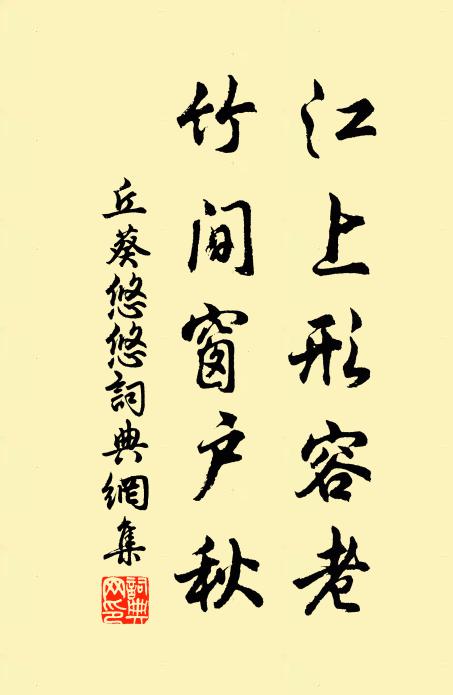 江上形容老
竹間窗户秋
丘葵悠悠詞典網集